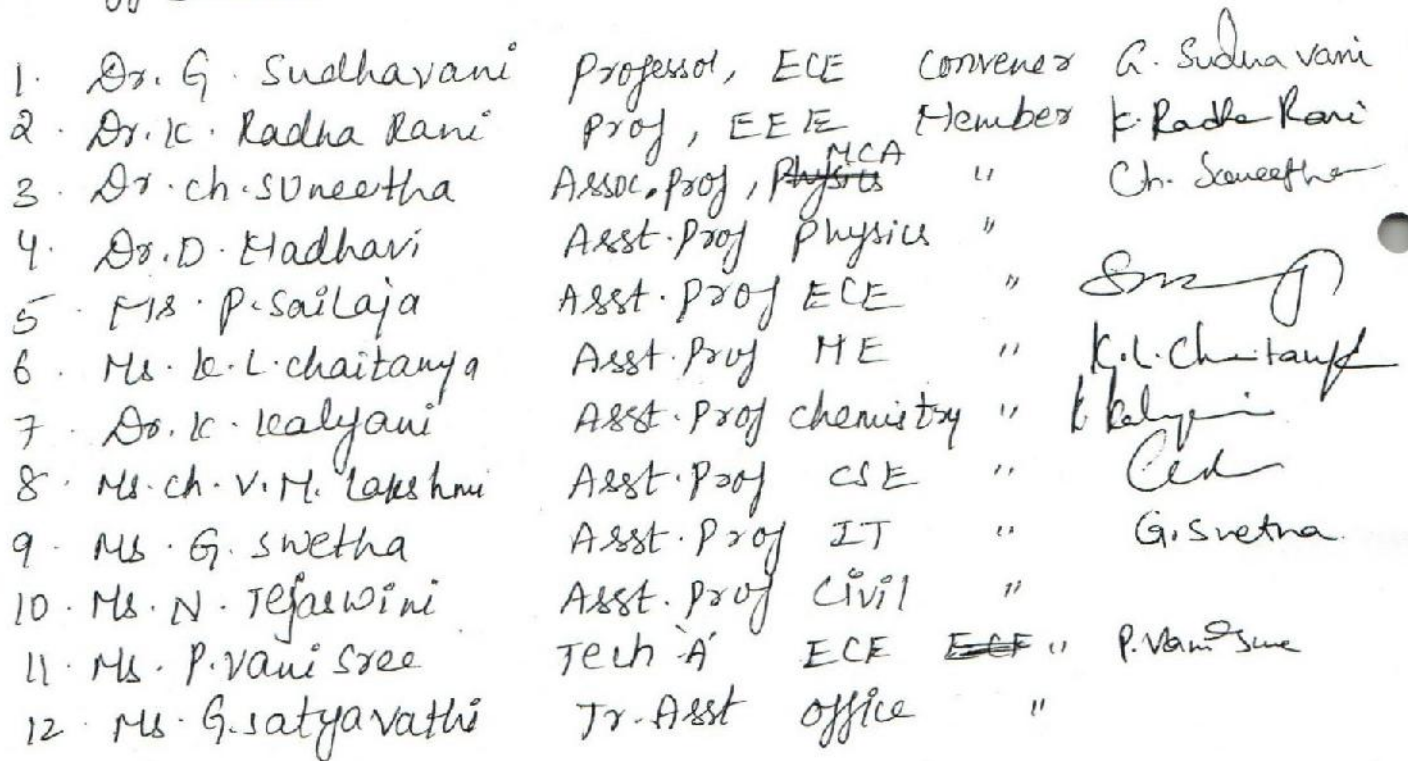 1. Dr. G. Sudhavani Professor, ECE Convener G. Sudha vani
2. Dr. K. Radha Rani Prof, EEE Member K. Radha Rani
3. Dr. ch. Suneetha Assoc. Prof, Physics MCA " Ch. Suneetha
4. Dr. D. Madhavi Asst. Prof Physics "
5. Ms. P. Sailaja Asst. Prof ECE "
6. Ms. K. L. chaitanya Asst. Prof ME " K.L. Chaitanya
7. Dr. K. kalyani Asst. Prof chemistry " K Kalyani
8. Ms. ch. V. M. Lakshmi Asst. Prof CSE "
9. Ms. G. Swetha Asst. Prof IT " G. Swetha
10. Ms. N. Tejaswini Asst. Prof Civil "
11. Ms. P. vani sree Tech 'A' ECE ECE " P. Vani Sree
12. Ms. G. satyavathi Jr. Asst office "